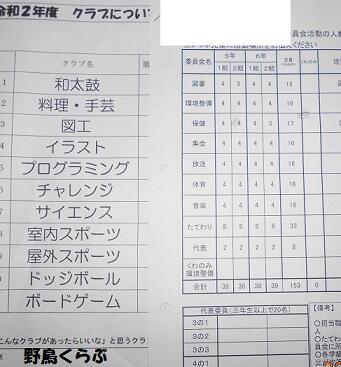 令和2年度 クラブについ
クラブ名
1 和太鼓
2 料理・手芸
3 図工
4 イラスト
5 プログラミング
6 チャレンジ
7 サイエンス
8 室内スポーツ
9 屋外スポーツ
ドッジボール
ボードゲーム
こんなクラブがあったらいいな」と思うクラ
野鳥くらぶ
員会活動の人数
委員会名 5年 6年 定員
1組 2組 1組 2組
図書 4 3 4 4 15
環境整備 4 4 4 4 16
保健 4 4 4 5 17
集会 4 4 4 4 16
放送 4 4 4 4 16
体育 4 4 4 4 16
音楽 4 4 4 4 16
たてわり 8 9 8 8 33
代表 2 2 2 2 8
くわのみ
環境整備
合計 38 38 38 39 153 0
代表委員(三年生以上で20名)
3の1
3の2
3の3
4の1
【備考】
○担当職